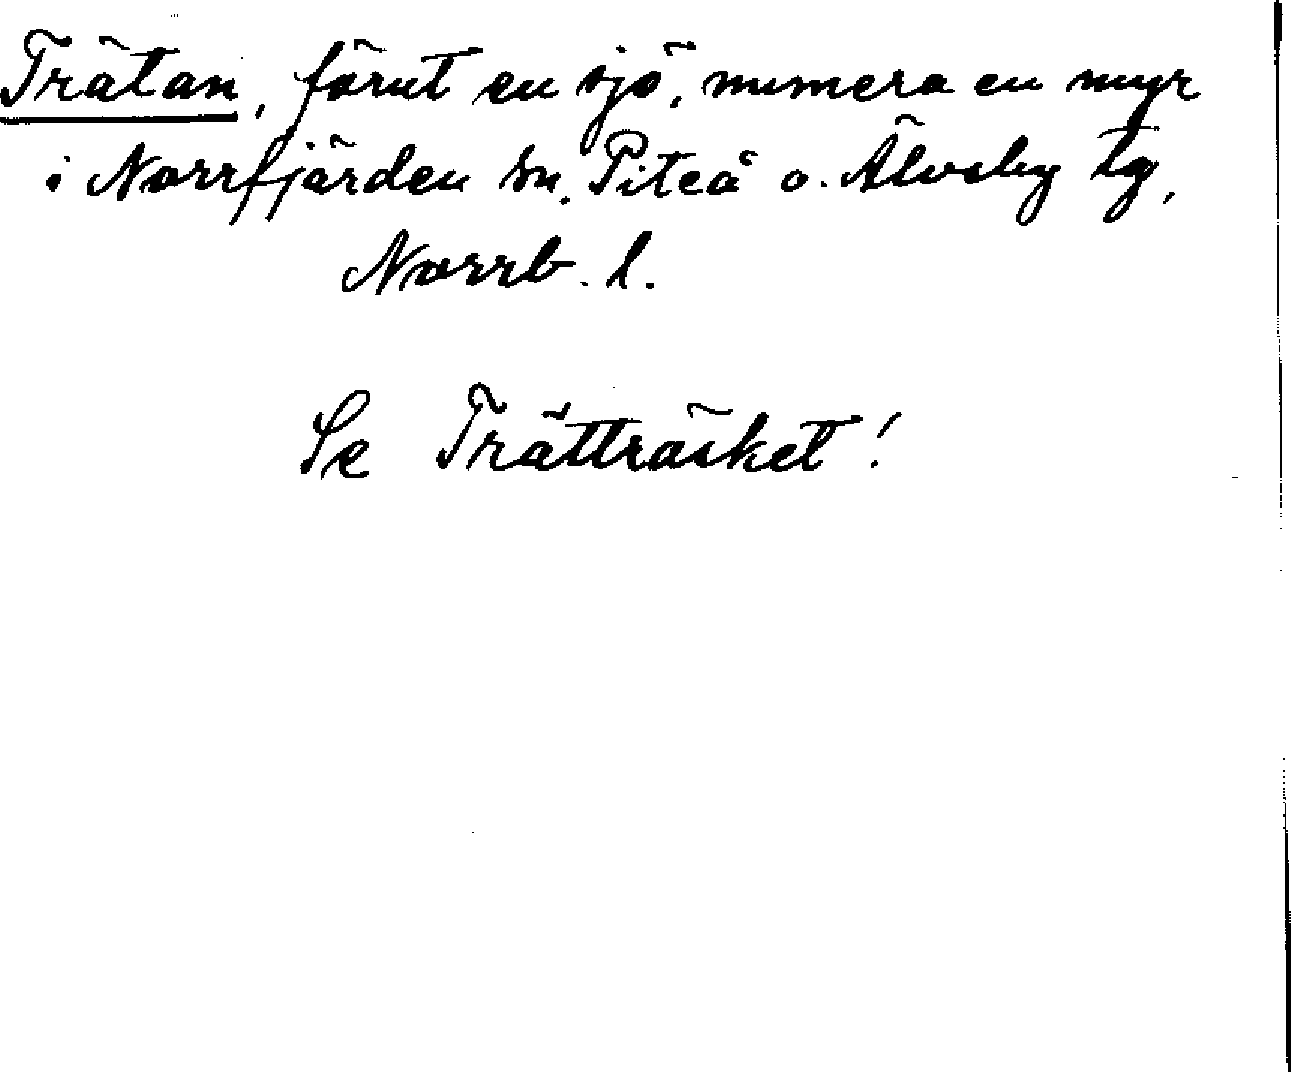 Trätan, förut en sjö, numera en myr
i Norrfjärden sn. Piteå o. Älvsby tg,
Norrb. l.
Se Trätträsket!